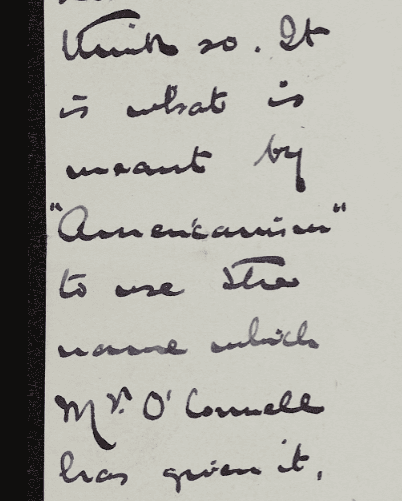 think so. It
is what is
meant by
"Americanism"
to use the
name which
Mr. O'Connell
has given it,